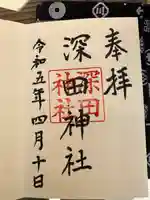 奉拝
深田神社
深田神社
令和五年四月十日